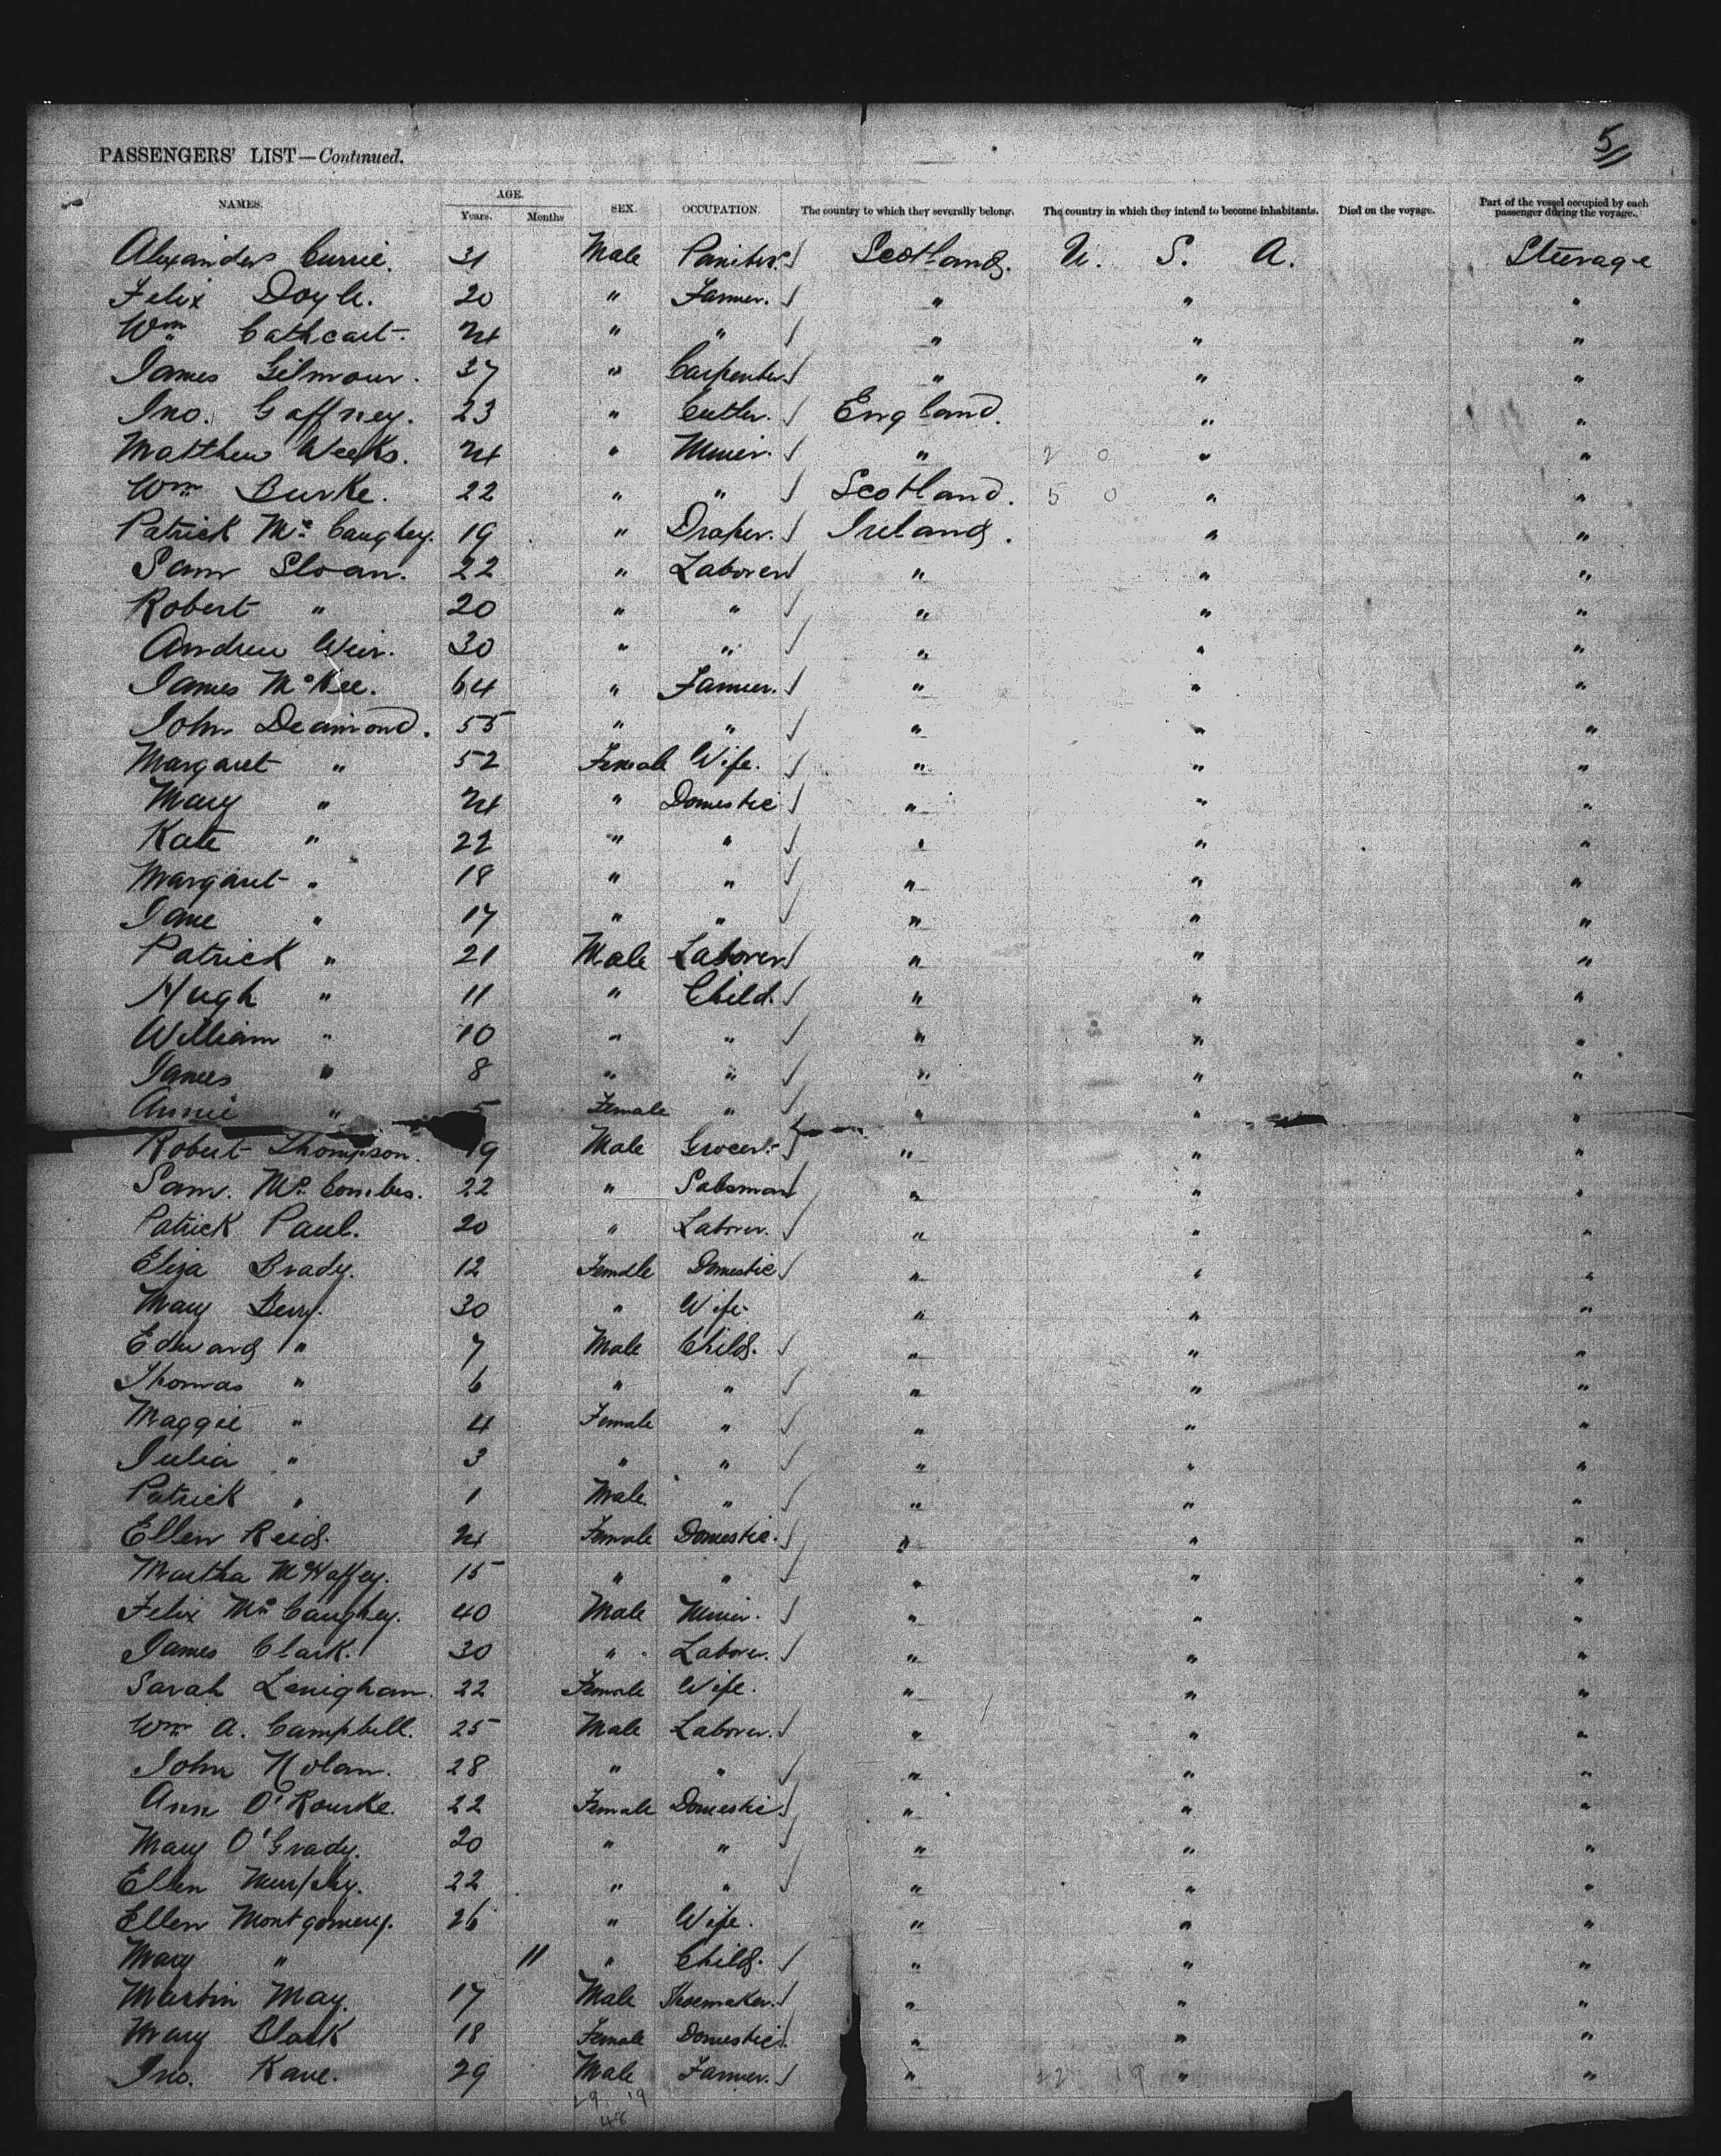 5
PASSENGERS' LIST—Continued.
NAMES. AGE. Years. Months SEX. OCCUPATION. The country to which they severally belong. The country in which they intend to become inhabitants. Died on the voyage. Part of the vessel occupied by each passenger during the voyage.
Alexander Currie. 31 Male Scotland. U. S. A. Steerage
Felix Doyle. 20 " Farmer. " " "
Wm Cathcart. 24 " " " " "
James Gilmour. 37 " Carpenter " " "
Jno. Gaffney. 23 " Cutler. England. " "
Matthew Weeks. 24 " Miner. " 2 0 " "
Wm Burke. 22 " " Scotland. 5 0 " "
Patrick Mc Caughey. 19 " Draper. Ireland. " "
Sam Sloan. 22 " Laborer " " "
Robert " 20 " " " " "
Andrew Weir. 30 " " " " "
James McKee. 64 " Farmer. " " "
John 55 " " " " "
Margaret " 52 Female Wife. " " "
Mary " 24 " Domestic " " "
Kate " 22 " " " " "
Margaret " 18 " " " " "
Jane " 17 " " " " "
Patrick " 21 Male Laborer " " "
Hugh " 11 " Child. " " "
William " 10 " " " " "
James " 8 " " " " "
Annie " 5 Female " " " "
Robert Thompson. 19 Male Grocer. " " "
Sam. Mc Combes. 22 " Salesman " " "
Patrick Paul. 20 " Laborer. " " "
Eliza Brady. 12 Female Domestic " " "
Mary Berry. 30 " Wife. " " "
Edward " 7 Male Child. " " "
Thomas " 6 " " " " "
Maggie " 4 Female " " " "
Julia " 3 " " " " "
Patrick " 1 Male. " " " "
Ellen Reid. 24 Female Domestic. " " "
Martha McHaffey. 15 " " " " "
Felix Mc Caughey. 40 Male Miner. " " "
James Clark. 30 " Laborer. " " "
Sarah Lenighan. 22 Female Wife. " " "
Wm A. Campbell. 25 Male Laborer. " " "
John Nolan. 28 " " " " "
Ann O'Rourke. 22 Female Domestic. " " "
Mary O'Grady. 20 " " " " "
Ellen Murphy. 22 " " " " "
Ellen Montgomery. 26 " Wife. " " "
Mary " 11 " Child. " " "
Martin May. 17 Male Shoemaker. " " "
Mary Black 18 Female Domestic. " " "
Jno. Kane. 29 Male Farmer. " 22 19 " "
29 19
48